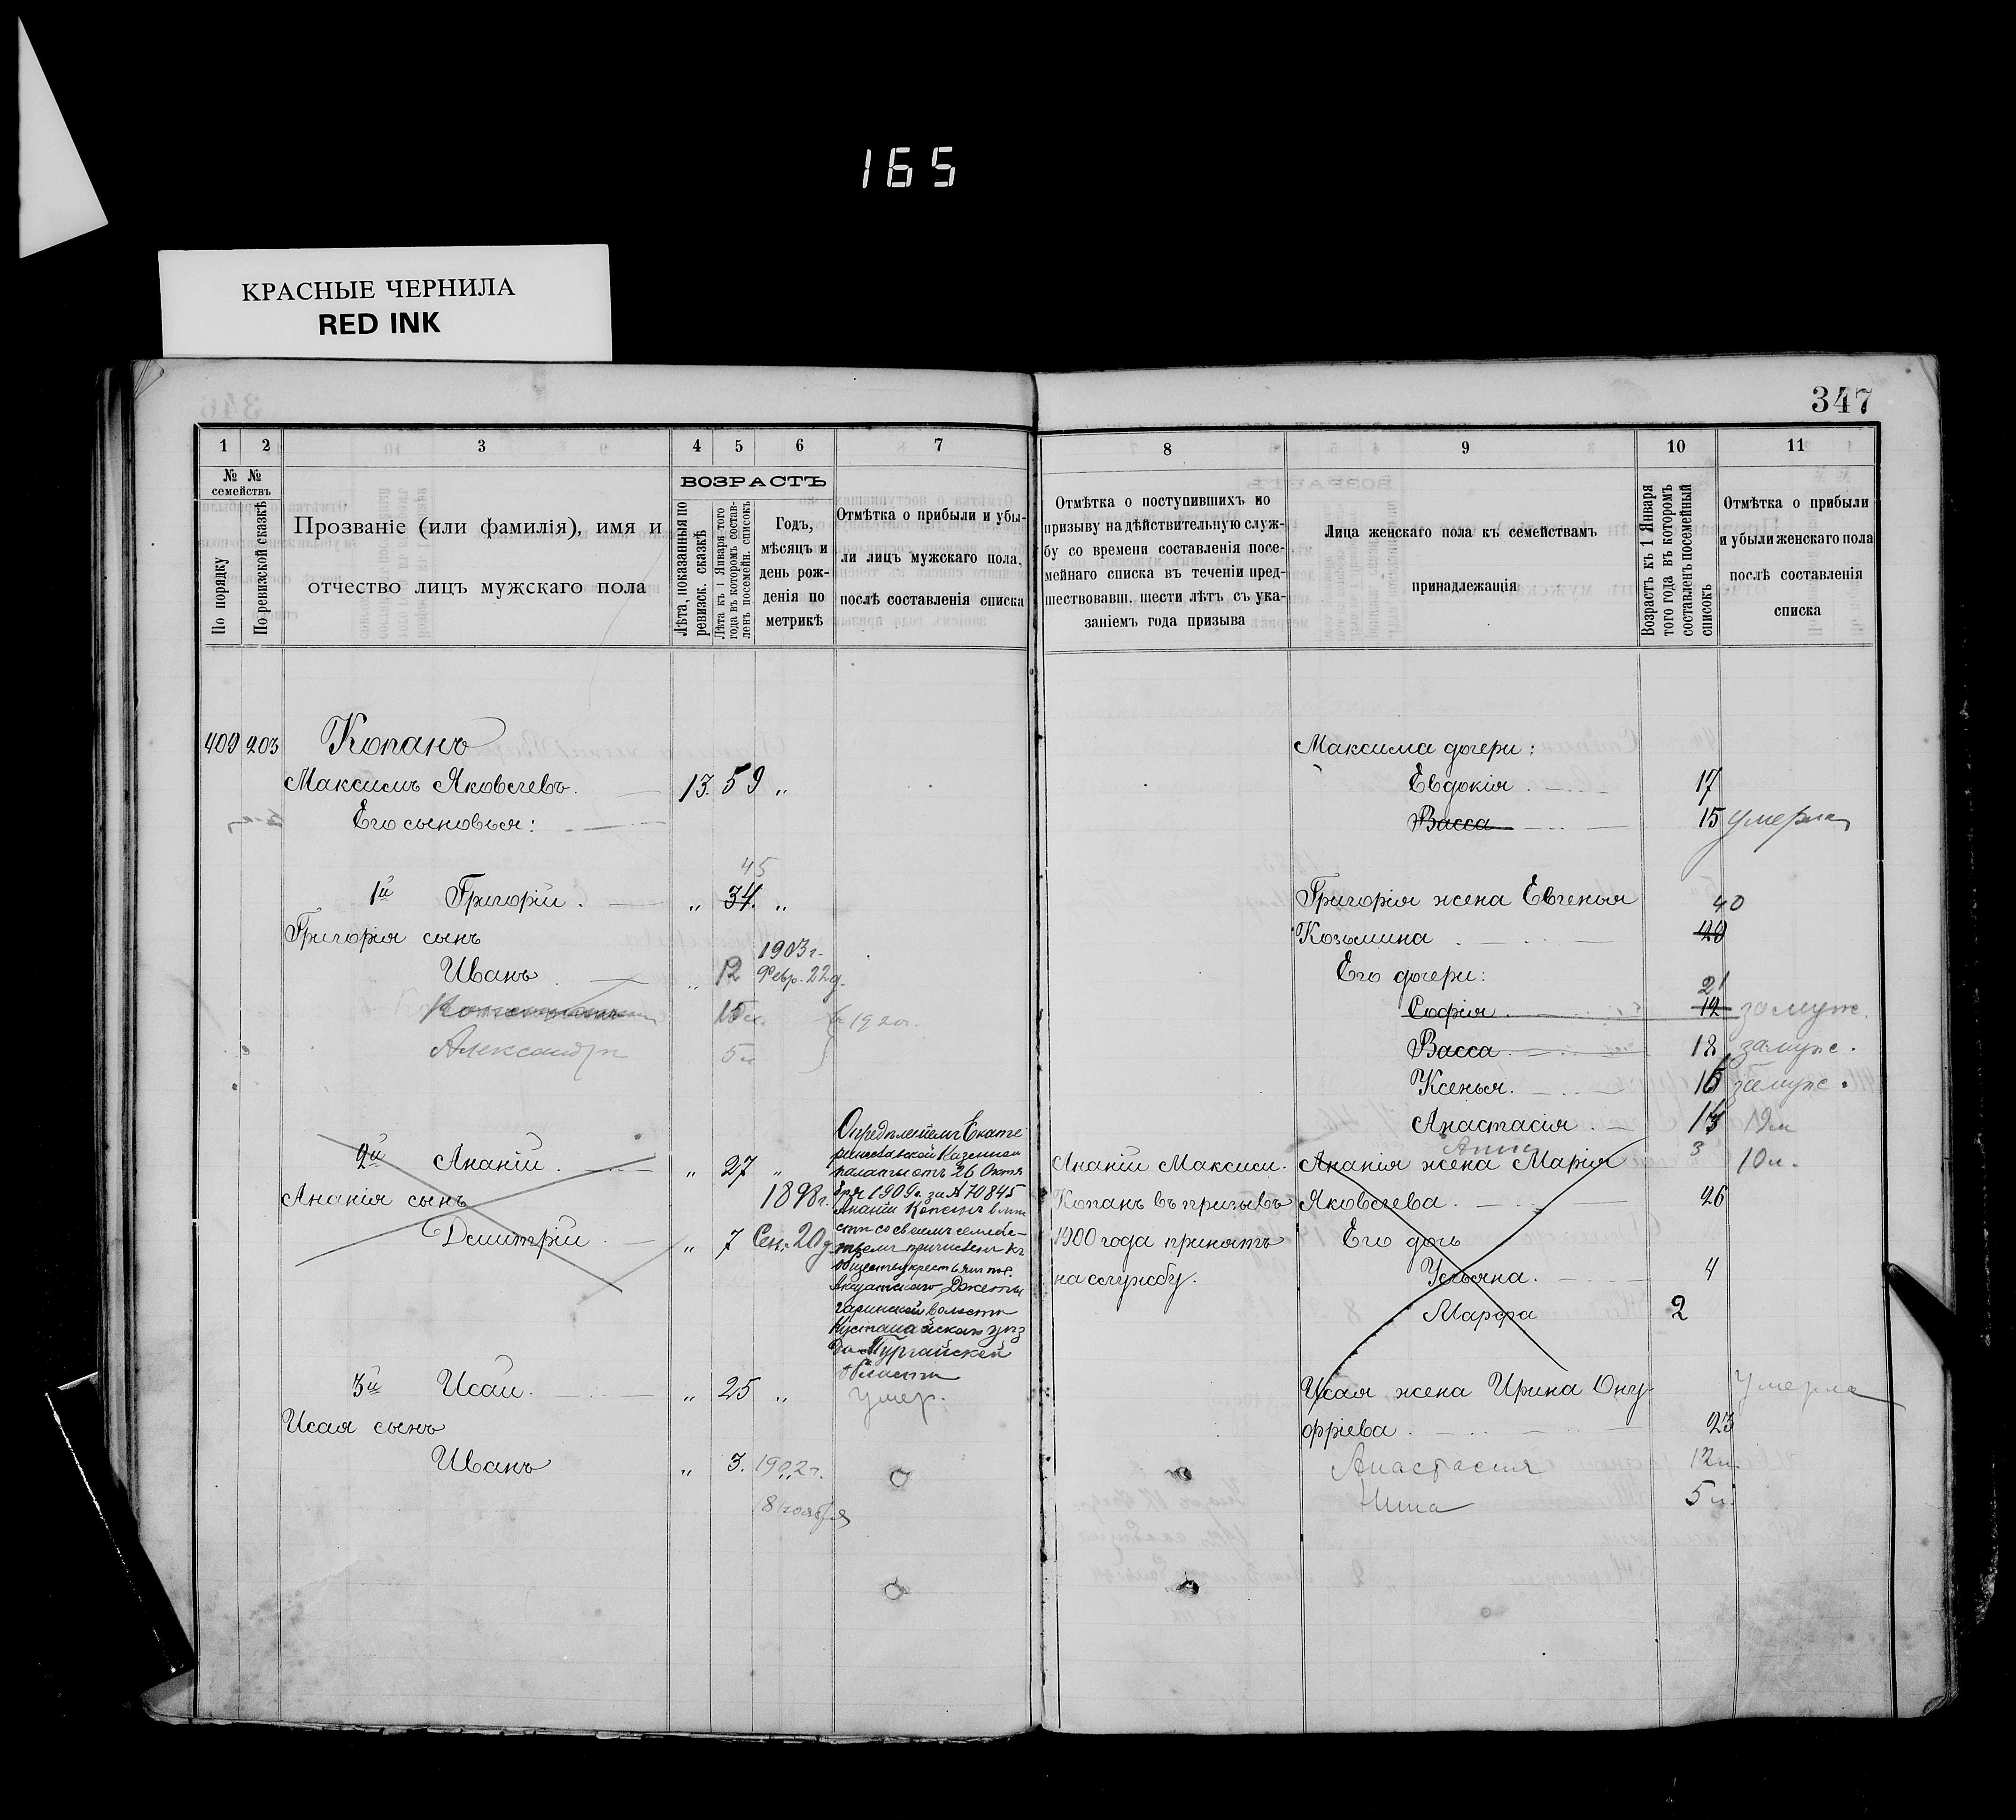 165
КРАСНЫЕ ЧЕРНИЛА
RED INK
347
1 2 3 4 5 6 7
№ № семействъ
По порядку
По ревизской сказкѣ
Прозваніе (или фамилія), имя и
отчество лицъ мужскаго пола
ВОЗРАСТЪ
Лѣта, показанныя по
ревизск. сказкѣ
Лѣта къ 1 Января того
года въ которомъ состав-
ленъ посемейн. списокъ
Годъ,
мѣсяцъ и
день рож-
денія по
метрикѣ
Отмѣтка о прибыли и убы-
ли лицъ мужскаго пола,
послѣ составленія списка
409 203 Копанъ
Максимъ Яковлевъ. 13. 59 „
Его сыновья:
45
1й Григорій. „ 34. „
Григорія сынъ
1903 г.
Иванъ „ 12 Февр. 22 д.
1920 г.
Александръ 5 л
2й Ананій. „ 27 „
Ананія сынъ 1898 г.
Дмитрій „ 7 Сен. 20 д.
Опредѣленіемъ Екате
ринославской Казенной
палаты отъ 26 Октя
бря 1909 г. за № 70845
Ананій Копанъ вмѣ
стѣ со своимъ семей-
ствомъ причисленъ къ
обществу крестьянъ пос.
Джеты
гаринской волости
Кустанайскаго уѣз
да Тургайской
области
3й Исай. „ 25 „ умер.
Исая сынъ
Иванъ „ 3. 1902 г.
8 ноября
8 9 10 11
Отмѣтка о поступившихъ по
призыву на дѣйствительную служ-
бу со времени составленія посе-
мейнаго списка въ теченіи пред-
шествовавш. шести лѣтъ съ ука-
заніемъ года призыва
Лица женскаго пола къ семействамъ
принадлежащія
Возрастъ къ 1 Января
того года въ которомъ
составленъ посемейный
списокъ
Отмѣтка о прибыли
и убыли женскаго пола
послѣ составленія
списка
Максима дочери:
Евдокія 17
Васса 15 умерла
Григорія жена Евгенья 40
Козьмина 29
Его дочери:
21
Софія 12 замуж.
Васса 18 замуж.
Ксенья. 16 замуж.
Анастасія 14 19 л
Анна 3 10 л.
Ананій Максим.
Копанъ въ призывъ
1900 года принятъ
на службу.
Ананія жена Марія
Яковлева. 26
Его дочь
Ульяна. 4
Марфа 2
Исая жена Ирина Ону- Умерла
фріева 23
Анастасия 12 л.
Нина 5 л.